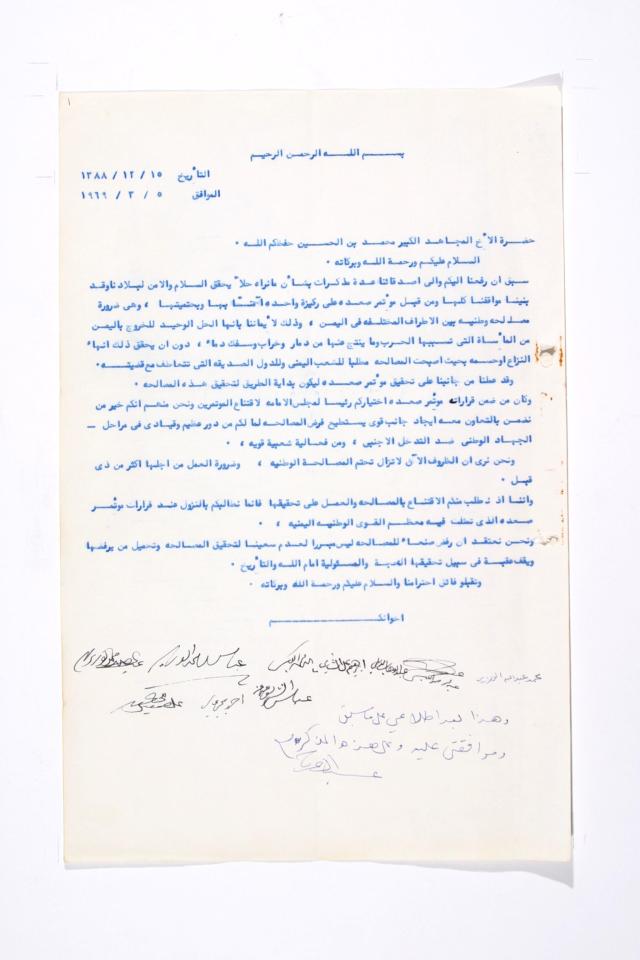 بسم اللـه الرحمن الرحيم
التأريخ ١٥ / ١٢ / ١٣٨٨
الموافق ٥ / ٣ / ١٩٦٩
حضرة الأخ المجاهد الكبير محمد بن الحسين حفظكم الله ٠
السلام عليكم ورحمة الله وبركاته ٠
سبق ان رفعنا اليكم والى اصدقائنا عدة مذكرات بشأن مانراه حلاً يحقق السلام والامن لبلادنا وقد
بنينا مواقفنا كلها ومن قبل مؤتمر صعده على ركيزة واحده آمنّا بها وبحتميتها ، وهى ضرورة
مصالحه وطنيه بين الاطراف المختلفه فى اليمن ، وذلك لايماننا بانها الحل الوحيد للخروج باليمن
من المأساة التى تسببها الحرب وما ينتج عنها من دمار وخراب وسفك دماء ، دون ان يحقق ذلك انهاء
النزاع اوحسمه بحيث اصبحت المصالحه مطلبا للشعب اليمنى وللدول الصديقه التى تتعاطف مع قضيته ٠
وقد عملنا من جانبنا على تحقيق مؤتمر صعده ليكون بداية الطريق لتحقيق هذه المصالحه ٠
وكان من ضمن قراراته مؤتمر صعده اختياركم رئيسا لمجلس الامامه لاقتناع المؤتمرين ونحن منهم انكم خير من
نضمن بالتعاون معه ايجاد جانب قوى يستطيع فرض المصالحه لما لكم من دور عظيم وقيادى فى مراحل
الجهاد الوطنى ضد التدخل الاجنبى ، ومن فعالية شعبية قويه ٠
ونحن نرى ان الظروف الآن لاتزال تحتم المصالحة الوطنيه ، وضرورة العمل من اجلها اكثر من ذى
قبل ٠
واننا اذ نطلب منكم الاقتناع بالمصالحه والعمل على تحقيقها فانما نطالبكم بالنزول عند قرارات مؤتمر
صعده الذى تمثلت فيه معظم القوى الوطنيه اليمنيه ٠
ونحن نعتقد ان رفض صنعاء للمصالحه ليس مبررا لعدم سعينا لتحقيق المصالحه وتحميل من يرفضها
ويقف عقبة فى سبيل تحقيقها المسئولية امام الله والتأريخ ٠
وتقبلو فائق احترامنا والسلام عليكم ورحمة الله وبركاته ٠
اخوانكـــم
وهذا بعد اطلاعي على ما سبق
وموافقتي عليه وعلى هذه المذكره